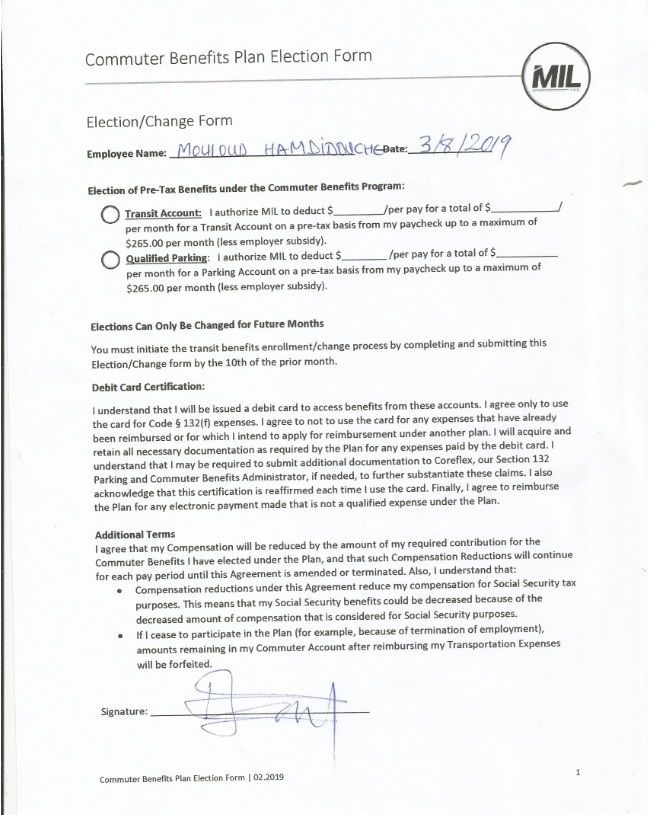 Commuter Benefits Plan Election Form
MIL
Election/Change Form
Employee Name: MOULOUD HAMDIDOUCHE Date: 3/8/2019
Election of Pre-Tax Benefits under the Commuter Benefits Program:
Transit Account: I authorize MIL to deduct $_________/per pay for a total of $____________/
per month for a Transit Account on a pre-tax basis from my paycheck up to a maximum of
$265.00 per month (less employer subsidy).
Qualified Parking: I authorize MIL to deduct $________ /per pay for a total of $___________
per month for a Parking Account on a pre-tax basis from my paycheck up to a maximum of
$265.00 per month (less employer subsidy).
Elections Can Only Be Changed for Future Months
You must initiate the transit benefits enrollment/change process by completing and submitting this
Election/Change form by the 10th of the prior month.
Debit Card Certification:
I understand that I will be issued a debit card to access benefits from these accounts. I agree only to use
the card for Code § 132(f) expenses. I agree to not to use the card for any expenses that have already
been reimbursed or for which I intend to apply for reimbursement under another plan. I will acquire and
retain all necessary documentation as required by the Plan for any expenses paid by the debit card. I
understand that I may be required to submit additional documentation to Coreflex, our Section 132
Parking and Commuter Benefits Administrator, if needed, to further substantiate these claims. I also
acknowledge that this certification is reaffirmed each time I use the card. Finally, I agree to reimburse
the Plan for any electronic payment made that is not a qualified expense under the Plan.
Additional Terms
I agree that my Compensation will be reduced by the amount of my required contribution for the
Commuter Benefits I have elected under the Plan, and that such Compensation Reductions will continue
for each pay period until this Agreement is amended or terminated. Also, I understand that:
• Compensation reductions under this Agreement reduce my compensation for Social Security tax
purposes. This means that my Social Security benefits could be decreased because of the
decreased amount of compensation that is considered for Social Security purposes.
• If I cease to participate in the Plan (for example, because of termination of employment),
amounts remaining in my Commuter Account after reimbursing my Transportation Expenses
will be forfeited.
Signature:
Commuter Benefits Plan Election Form | 02.2019
1